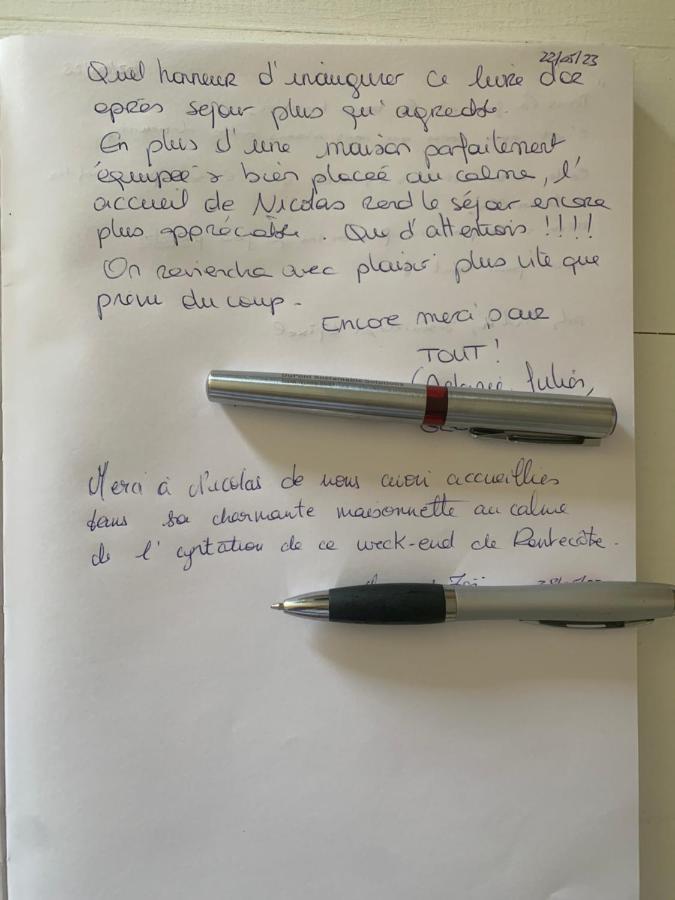 22/05/23
Quel honneur d'inaugurer ce livre d'or
après séjour plus qu'agréable.
En plus d'une maison parfaitement
équipée & bien placée au calme, l'
accueil de Nicolas rend le séjour encore
plus appréciable. Que d'attentions !!!!
On reviendra avec plaisir plus vite que
prévu du coup.
Encore merci pour
TOUT !
Julien,
DuPont Sustainable Solutions
Merci à Nicolas de nous avoir accueillies
dans sa charmante maisonnette au calme
de l'agitation de ce week-end de Pentecôte.